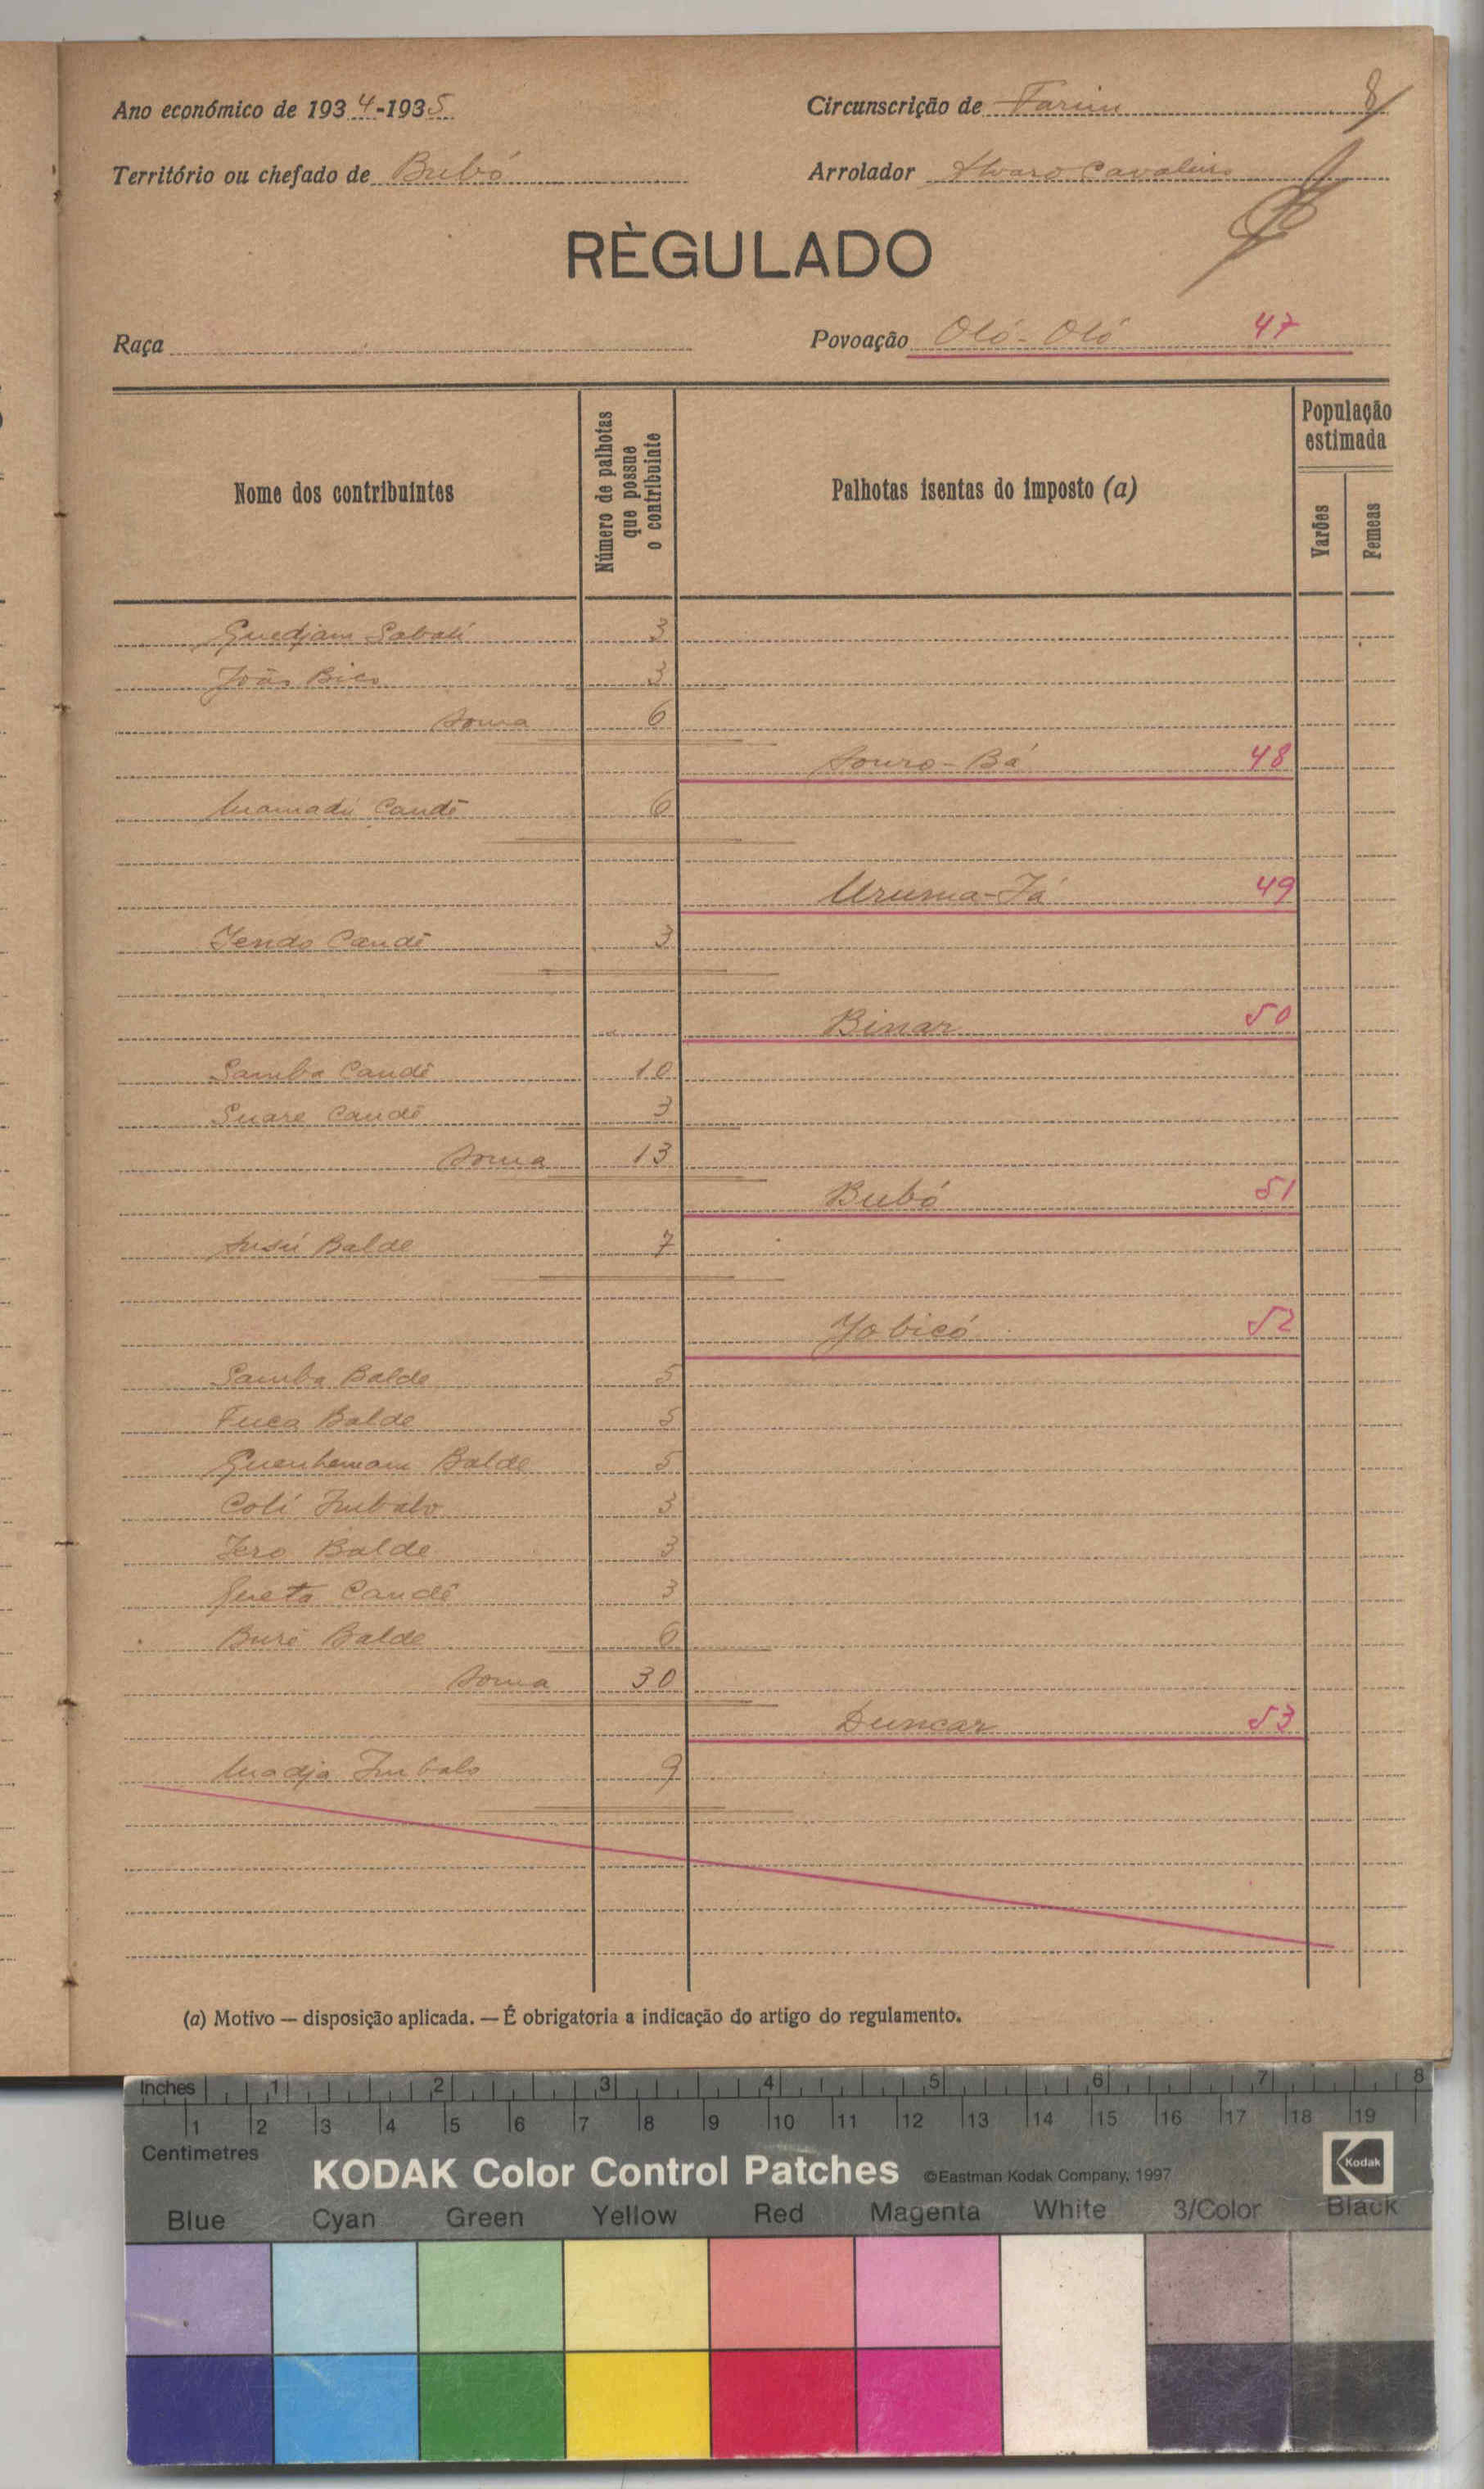 Ano económico de 1934-1935 Circunscrição de Farim 8
Território ou chefado de Bubó Arrolador Alvaro Cavaleiro
RÈGULADO
Raça Povoação Oló-Oló 47
Nome dos contribuintes Número de palhotas que possue o contribuinte Palhotas isentas do imposto (a) População estimada Varões Femeas
Guedjam Sabali 3
João Bico 3
Soma 6
Souro-Bá 48
Mamadú Candê 6
Uruma-Já 49
Jendo Candê 3
Binar 50
Samba Candê 10
Suare Candê 3
Soma 13
Bubó 51
Susú Balde 7
Yobicó 52
Samba Balde 5
Fuca Balde 5
Balde 5
Coli Imbalo 3
Jero Balde 3
Queta Candê 3
Buré Balde 6
Soma 30
Duncar 53
Madja Imbalo 9
(a) Motivo — disposição aplicada. — É obrigatoria a indicação do artigo do regulamento.
Inches 1 2 3 4 5 6 7 8
1 2 3 4 5 6 7 8 9 10 11 12 13 14 15 16 17 18 19
Centimetres
KODAK Color Control Patches ©Eastman Kodak Company, 1997 Kodak
Blue Cyan Green Yellow Red Magenta White 3/Color Black